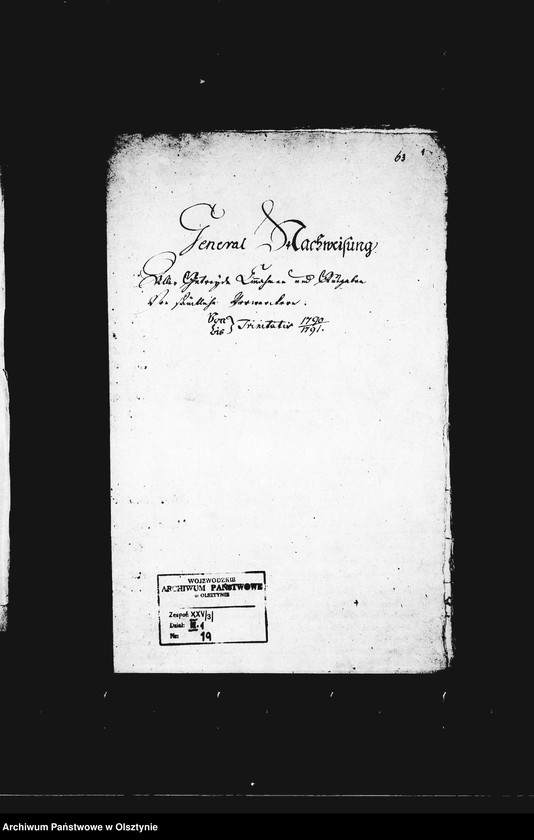 63 1
General Nachweisung
Aller Getreyde Einnahmen und Ausgaben
Von sämtliche Vorwercker.
Von
bis } Trinitatis 1790/1791.
WOJEWÓDZKIE
ARCHIWUM PAŃSTWOWE
w OLSZTYNIE
Zespół: XXV/3/
Dział: III.1
Nr: 19
Archiwum Państwowe w Olsztynie